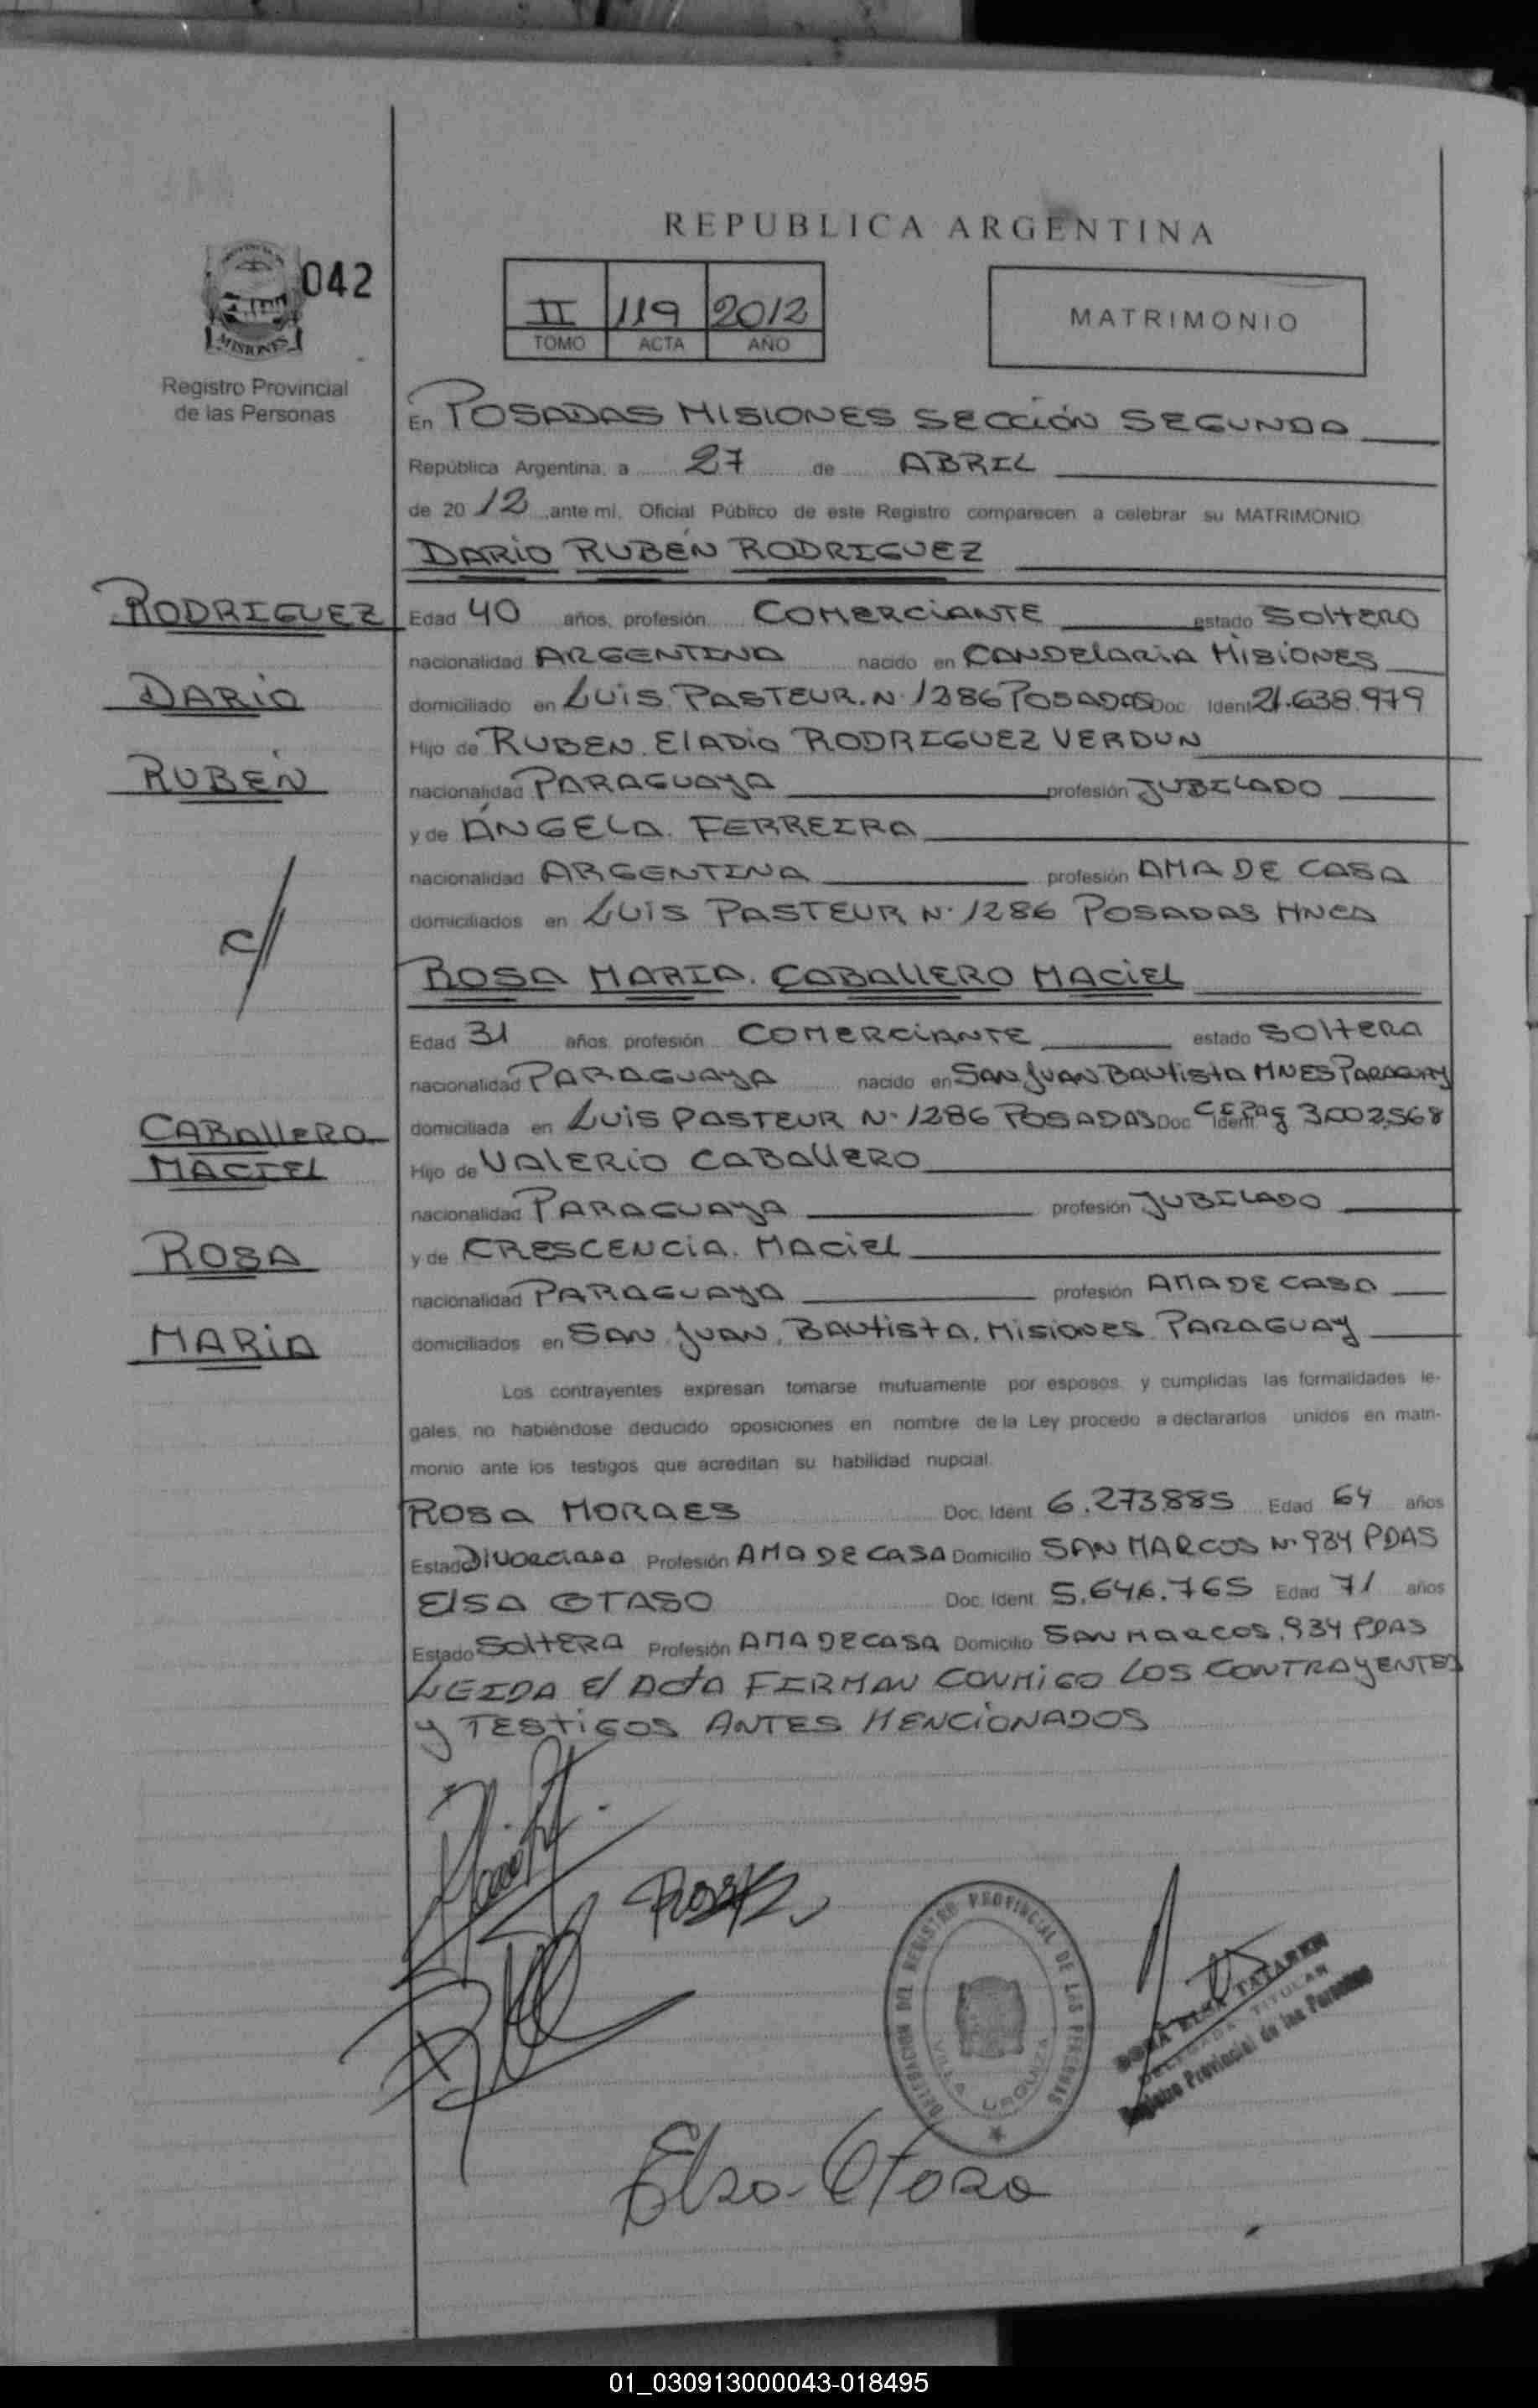 REPUBLICA ARGENTINA
042
MISIONES
Registro Provincial
de las Personas
II 119 2012
TOMO ACTA AÑO
MATRIMONIO
En POSADAS MISIONES SECCIÓN SEGUNDA
República Argentina, a 27 de ABRIL
de 2012, ante mi, Oficial Público de este Registro comparecen a celebrar su MATRIMONIO
DARIO RUBÉN RODRIGUEZ
RODRIGUEZ
DARIO
RUBÉN
c//
Edad 40 años, profesión COMERCIANTE estado SOLTERO
nacionalidad ARGENTINA nacido en CANDELARIA MISIONES
domiciliado en LUIS PASTEUR. N· 1286 POSADAS Doc. Ident 21.638.979
Hijo de RUBEN ELADIO RODRIGUEZ VERDUN
nacionalidad PARAGUAYA profesión JUBILADO
y de ÁNGELA FERREIRA
nacionalidad ARGENTINA profesión AMA DE CASA
domiciliados en LUIS PASTEUR N· 1286 POSADAS MNES
ROSA MARIA CABALLERO MACIEL
Edad 31 años, profesión COMERCIANTE estado SOLTERA
nacionalidad PARAGUAYA nacido en SAN JUAN BAUTISTA MNES PARAGUAY
CABALLERO
MACIEL
ROSA
MARIA
domiciliada en LUIS PASTEUR N· 1286 POSADAS Doc. Ident 3.002.568
Hijo de VALERIO CABALLERO
nacionalidad PARAGUAYA profesión JUBILADO
y de CRESCENCIA MACIEL
nacionalidad PARAGUAYA profesión AMA DE CASA
domiciliados en SAN JUAN BAUTISTA, MISIONES PARAGUAY
Los contrayentes expresan tomarse mutuamente por esposos, y cumplidas las formalidades le-
gales, no habiéndose deducido oposiciones en nombre de la Ley procedo a declararlos unidos en matri-
monio ante los testigos que acreditan su habilidad nupcial.
ROSA MORAES Doc. Ident. 6.273.885 Edad 64 años
Estado DIVORCIADA Profesión AMA DE CASA Domicilio SAN MARCOS N· 934 PDAS
ELSA OTASO Doc. Ident. 5.646.765 Edad 71 años
Estado SOLTERA Profesión AMA DE CASA Domicilio SAN MARCOS 934 PDAS
LEIDA el ACTA FIRMAN CONMIGO LOS CONTRAYENTES
y TESTIGOS ANTES MENCIONADOS
DELEGACION DEL REGISTRO PROVINCIAL DE LAS PERSONAS
VILLA URQUIZA
ELSA TATAREN
DELEGADA TITULAR
Registro Provincial de las Personas
Elsa Otaso
01_030913000043-018495